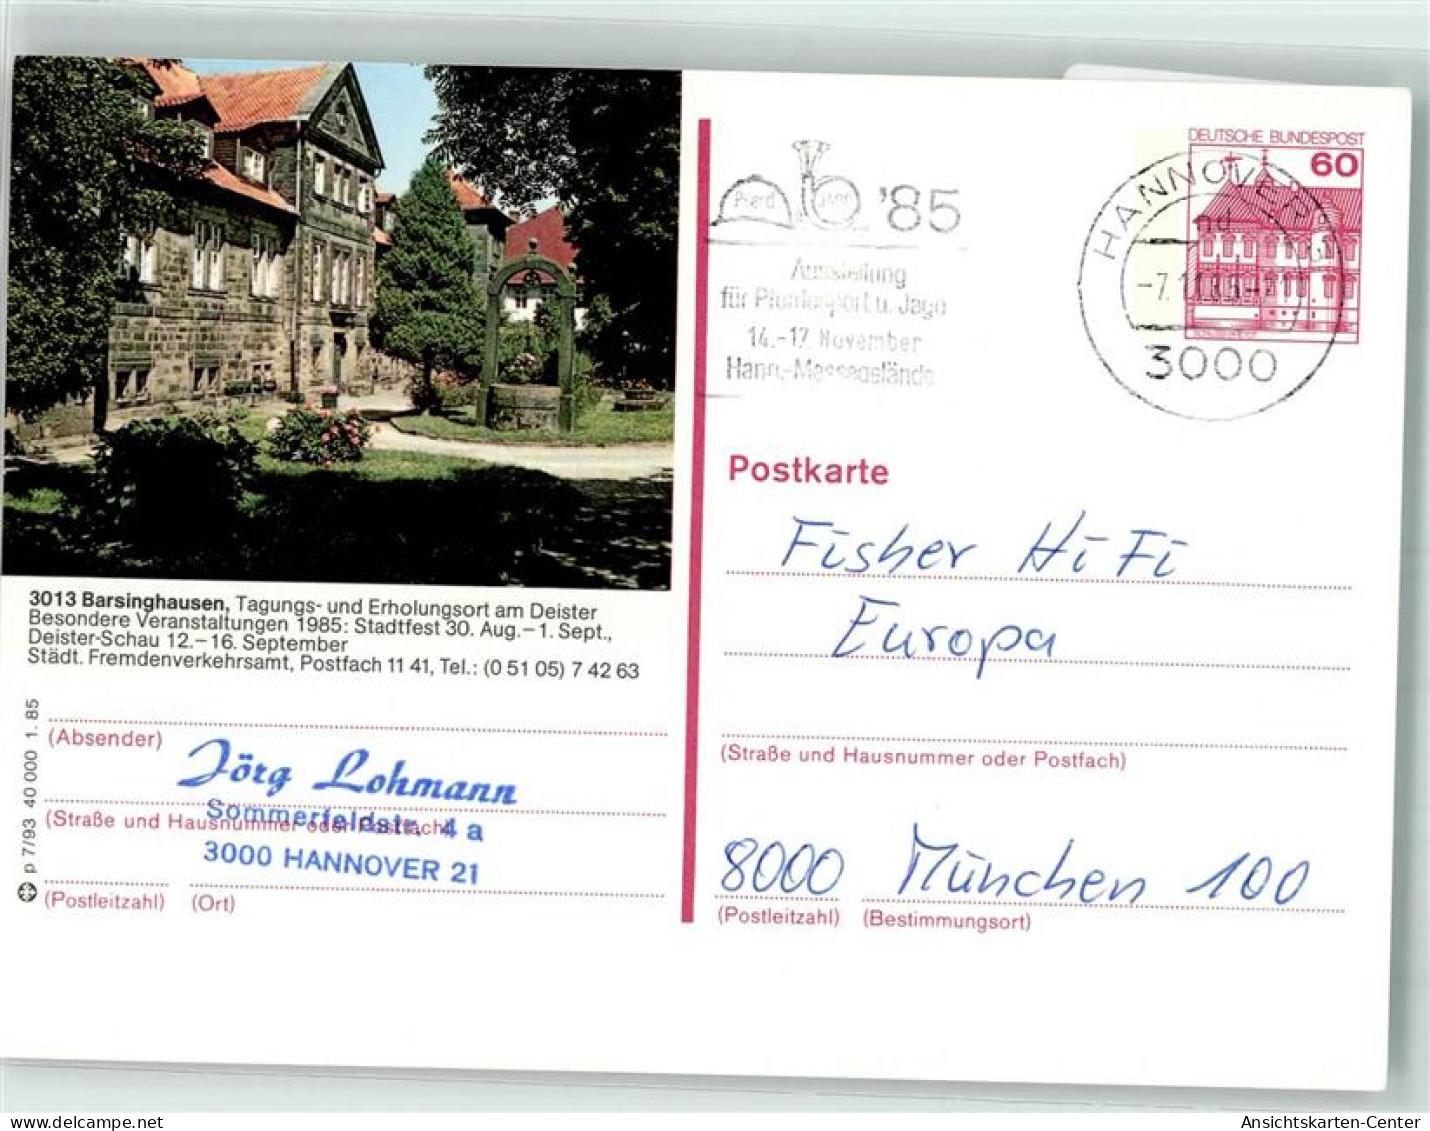 DEUTSCHE BUNDESPOST
60
HANNOVER
-7.11.85-21
nd
3000
Pferd Jagd '85
Ausstellung
für Pferdesport u. Jagd
14.-17. November
Hann.-Messegelände
Postkarte
Fisher HiFi
Europa
(Straße und Hausnummer oder Postfach)
8000 München 100
(Postleitzahl) (Bestimmungsort)
3013 Barsinghausen, Tagungs- und Erholungsort am Deister
Besondere Veranstaltungen 1985: Stadtfest 30. Aug.-1. Sept.,
Deister-Schau 12.-16. September
Städt. Fremdenverkehrsamt, Postfach 11 41, Tel.: (0 51 05) 7 42 63
(Absender)
Jörg Lohmann
Sommerfeldstr. 4 a
(Straße und Hausnummer oder Postfach)
3000 HANNOVER 21
(Postleitzahl) (Ort)
p 7/93 40 000 1. 85
delcampe.net
Ansichtskarten-Center